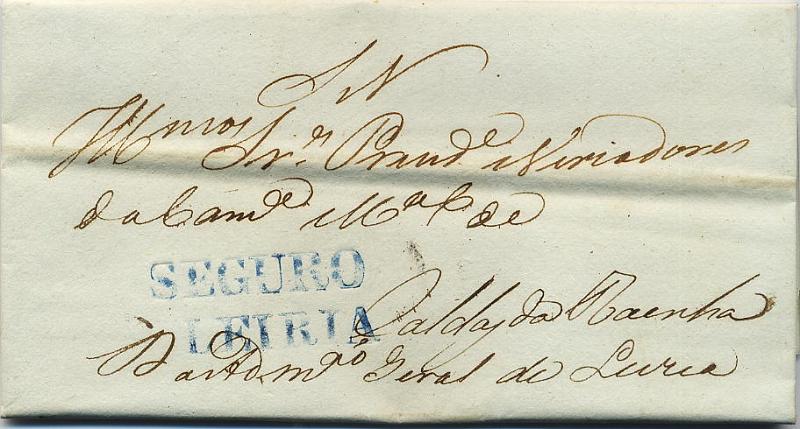 S N
Illmos Snr.s Prezde. e Viriadores
da Camr.e Mal. de
SEGURO
LEIRIA
Caldas da Raenha
Da Adm.ão Geral de Leiria